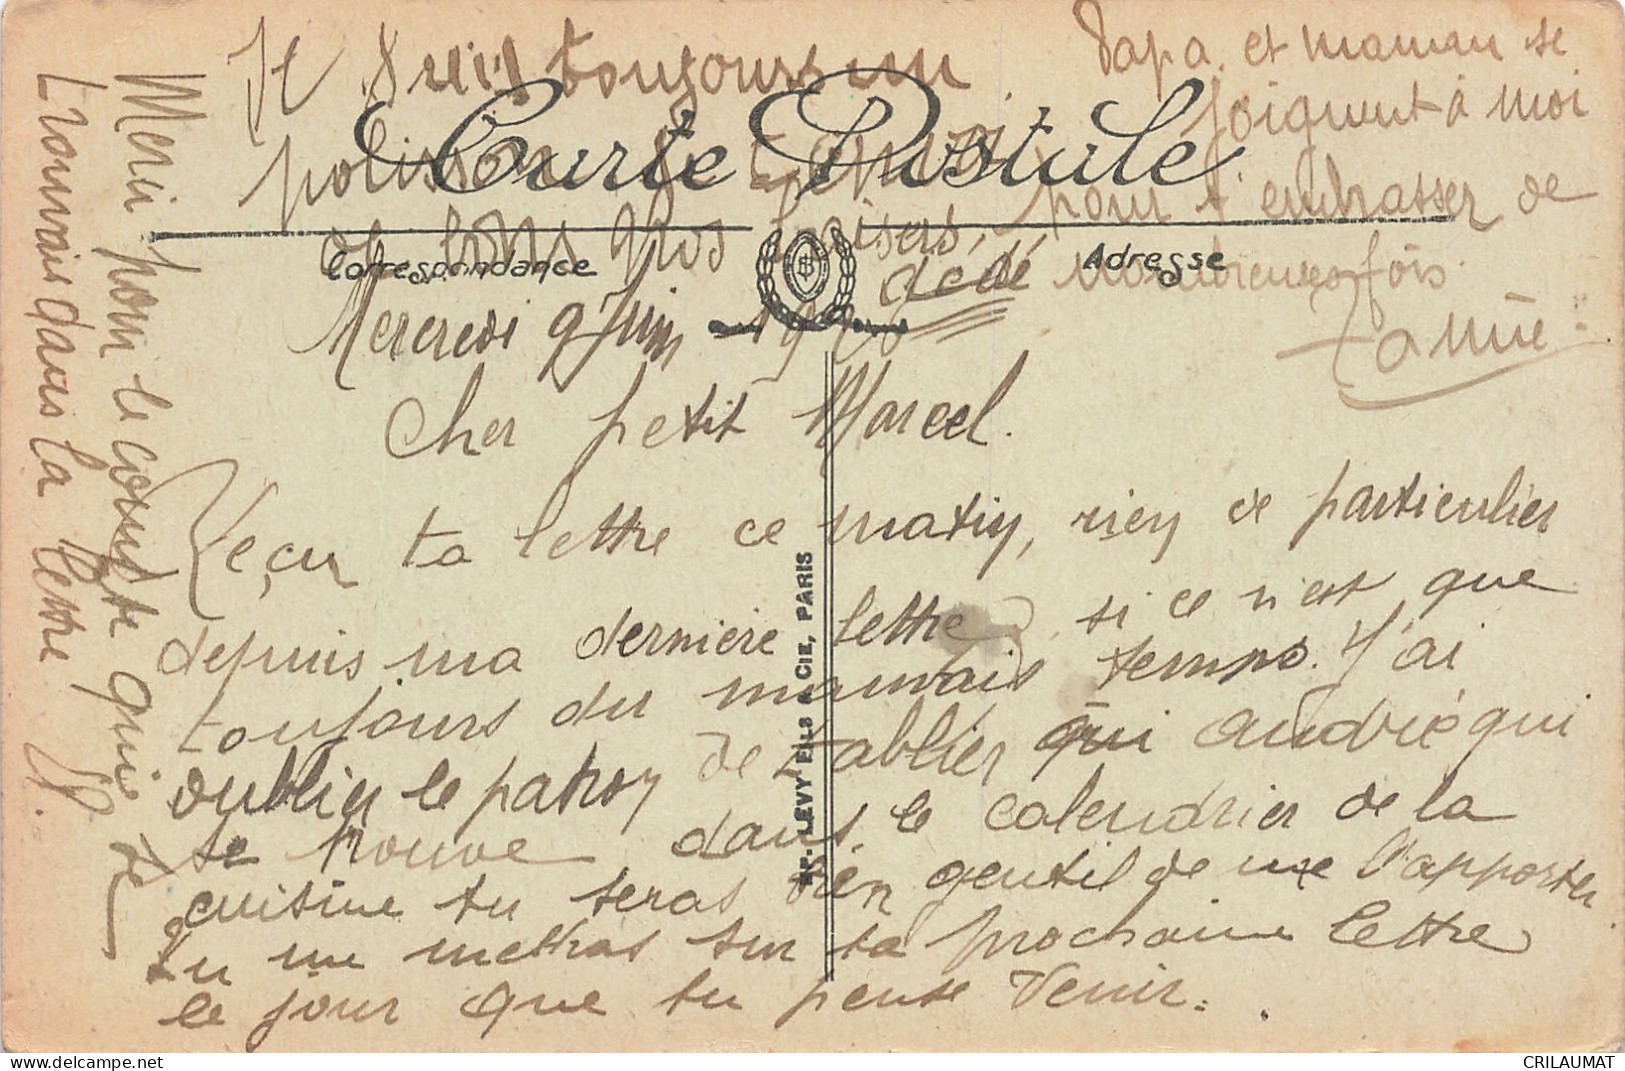 Je suis toujours un
polisson
de tous gros baisers,
dédé
Papa et maman se
joignent à moi
pour t'embrasser de
nombreuses fois.
Ta mie
Carte Postale
Correspondance
Adresse
Mercredi 9 Juin
Cher petit Marcel.
Reçu ta lettre ce matin, rien de particulier
depuis ma dernière lettre, si ce n'est que
toujours du mauvais temps. J'ai
oublier le patron de tablier qui andrée qui
se trouve dans le calendrier de la
cuisine tu seras bien gentil de me l'apporter
Tu me mettras sur ta prochaine lettre
le jour que tu pense venir.
Merci pour le compte que je
trouvais dans la lettre
LEVY FILS & CIE, PARIS
CRILAUMAT
delcampe.net